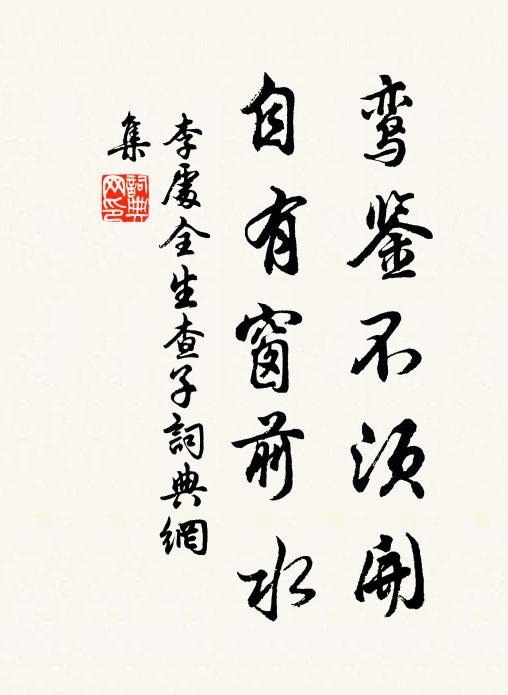 鸾鉴不须开
自有窗前水
李处全生查子詞典網
集
詞典网印